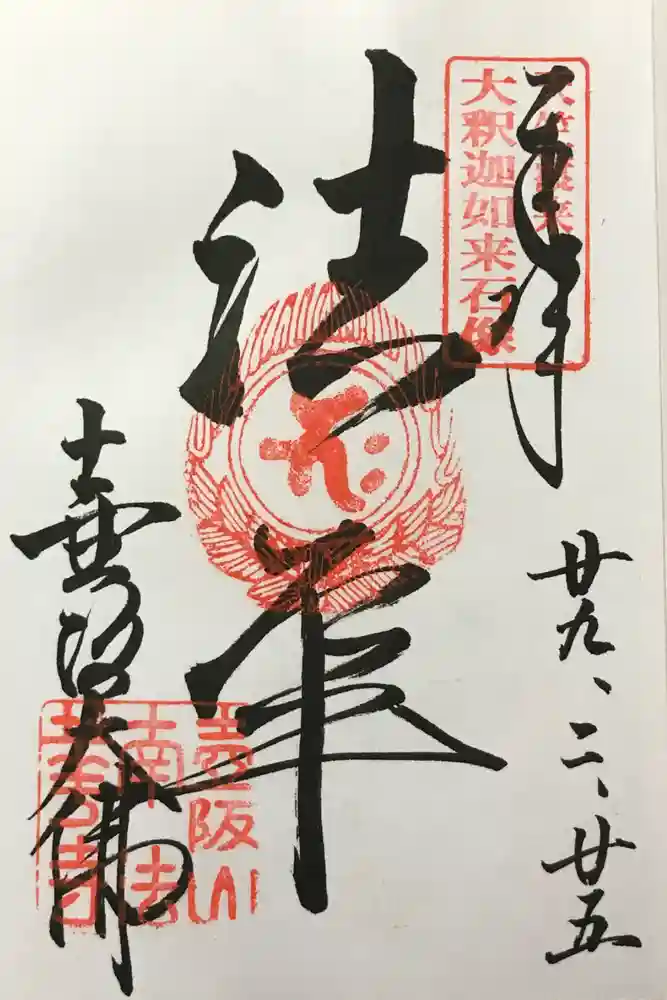 奉拝
廿九、二、廿五
天竺渡来
大釈迦如来石像
法華
壺阪大佛
壺阪山
南法
華寺